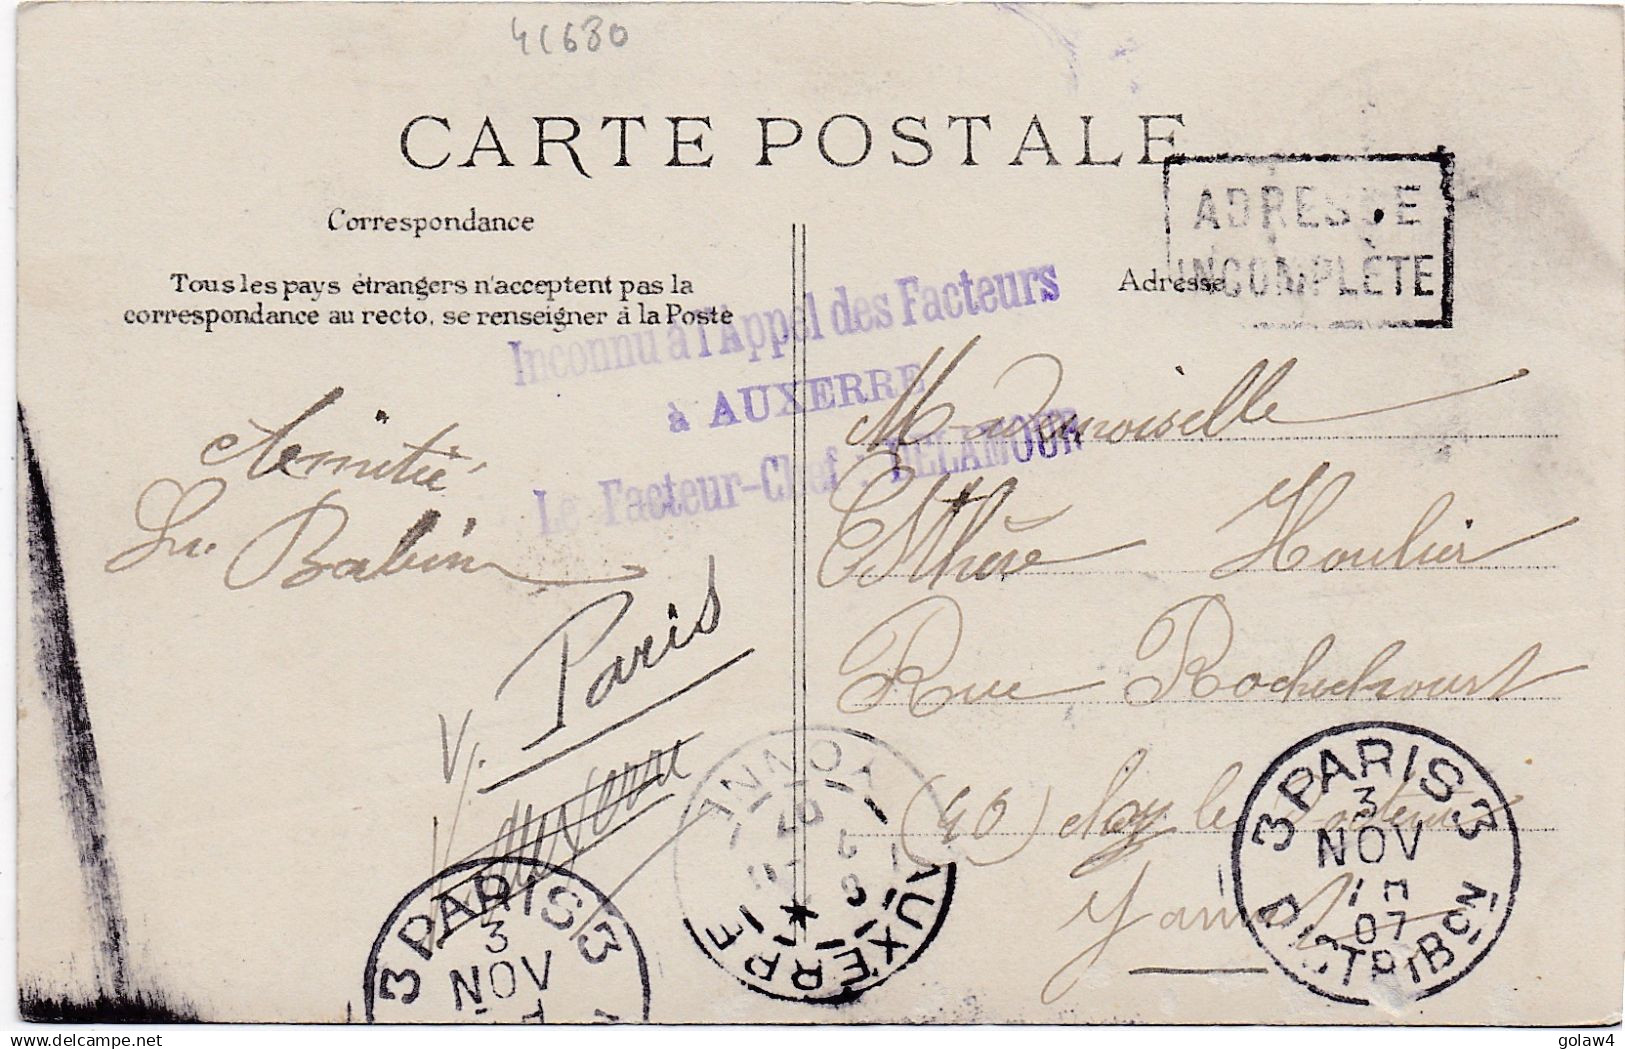 41680
CARTE POSTALE
ADRESSE
INCOMPLÈTE
Correspondance
Tous les pays étrangers n'acceptent pas la
correspondance au recto, se renseigner à la Poste
Adresse
Inconnu à l'Appel des Facteurs
à AUXERRE
Le Facteur-Chef : DELAMOUR
Amitié
Babin
V. Paris
V. Auxerre
Mademoiselle
Esthère Houlier
Rue Rochechouart
(46) chez le
YONNE
AUXERRE
3 PARIS 3
3
NOV
3 PARIS 3
3
NOV
07
DISTRIBON
golaw4